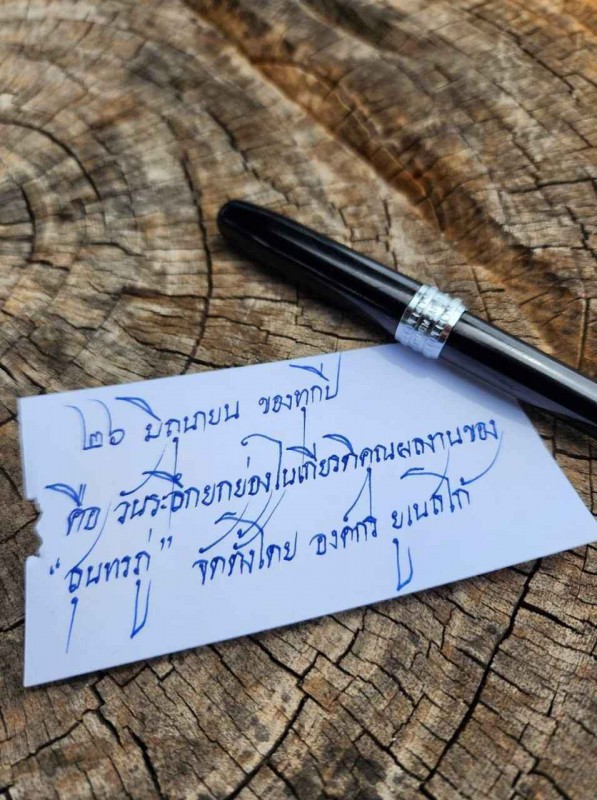 ๒๖ มิถุนายน ของทุกปี
คือ วันระลึกยกย่องในเกียรติคุณผลงานของ
"สุนทรภู่" จัดตั้งโดย องค์กร ยูเนสโก้